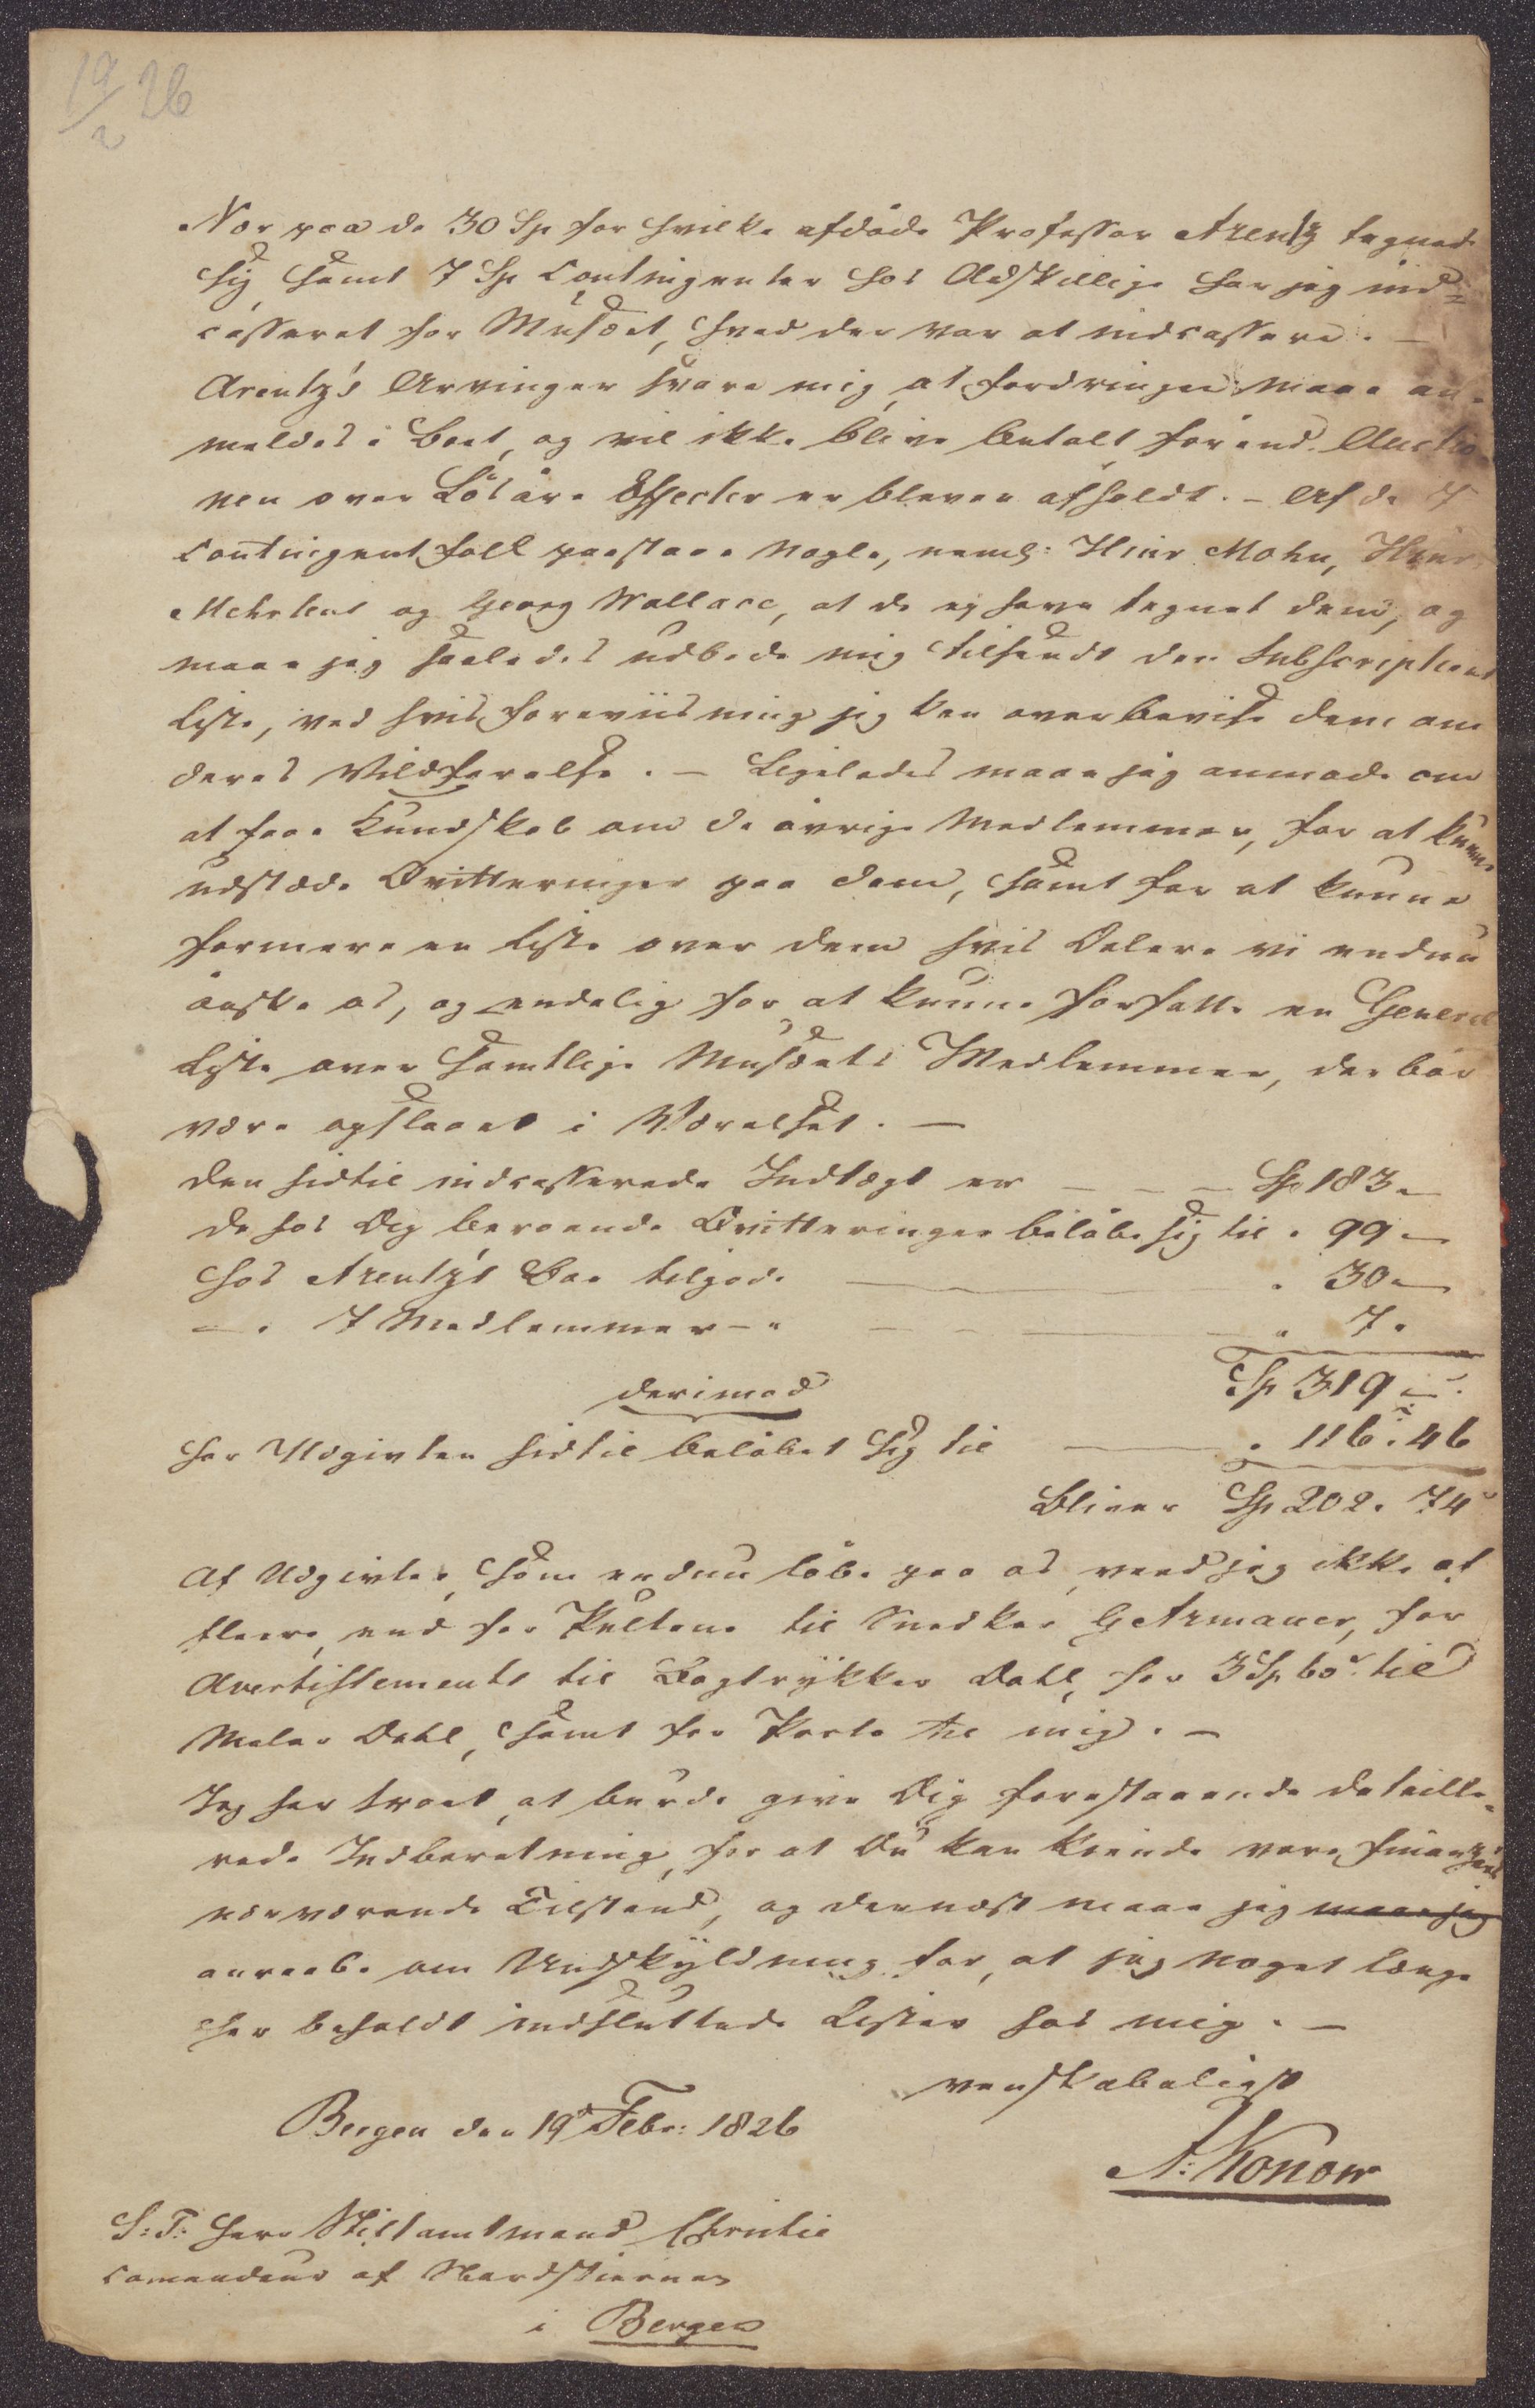 19/2 26
Nær paa de 30 Sp for hvilke afdøde Professor Arentz tegnede
sig, samt 7 Sp Contingenter hos Adskillige har jeg ind=
casseret for Musæet, hvad der var at indcassere. —
Arentz's Arvinger svare mig, at fordringen maae an=
meldes i Boet, og vil ikke blive betalt, førend Auctio
nen over Løsøre Effecter er bleven afholdt. – Af de 7
Contingent fold paastaae Nogle, neml: Hinr Mohn, Hinr
Mehrtens og Georg Wallace, at de ej have tegnet dem, og
maae jeg saaledes udbede mig tilsendt den Subscriptions
liste, ved hvis foreviisning jeg kan overbevise dem om
deres Vildfarelse. — Ligeledes maae jeg anmode om
at faae Kundskab om de øvrige Medlemmer, for at kunne
udstæde Qvitteringer paa dem, samt for at kunne
formere en Liste over dem hvis Dalere vi endnu
ønske os, og endelig for at kunne forfatte en General
Liste over samtlige Musæets Medlemmer, der bør
være opslaaet i Værelset. —
Den hidtil indcasserede Indtægt er — — — Sp 183 „
de hos Dig beroende Qvitteringer beløbe sig til „ 99 „
hos Arentz's Boe tilgode — „ 30 „
— „ 7 Medlemmer – „ — — — „ 7 „
Sp 319 „
derimod
har Udgivten hidtil beløbet sig til — „ 116 „ 46
bliver Sp 202 „ 74
Af Udgivter, som endnu løbe paa os, veed jeg ikke af
fleere, end for Pultene til Snedker G Armauer, for
Avertissements til Bogtrykker Dahl, for 3 Sp 60 til
Maler Dahl, samt for Porto til mig. —
Jeg har troet, at burde give Dig forestaaende detaille=
rede Indberetning, for at Du kan kiende vore finanzers
nærværende Tilstand, og dernæst maae jeg maae jeg
anraabe om Undskyldning for, at jeg noget længe
har beholdt indsluttede Lister hos mig. —
venskabeligst
Bergen den 19d Febr: 1826
A: Konow
S: T: Herr Stiftamtmand Christie
Comandeur af Nordstiernen
i Bergen